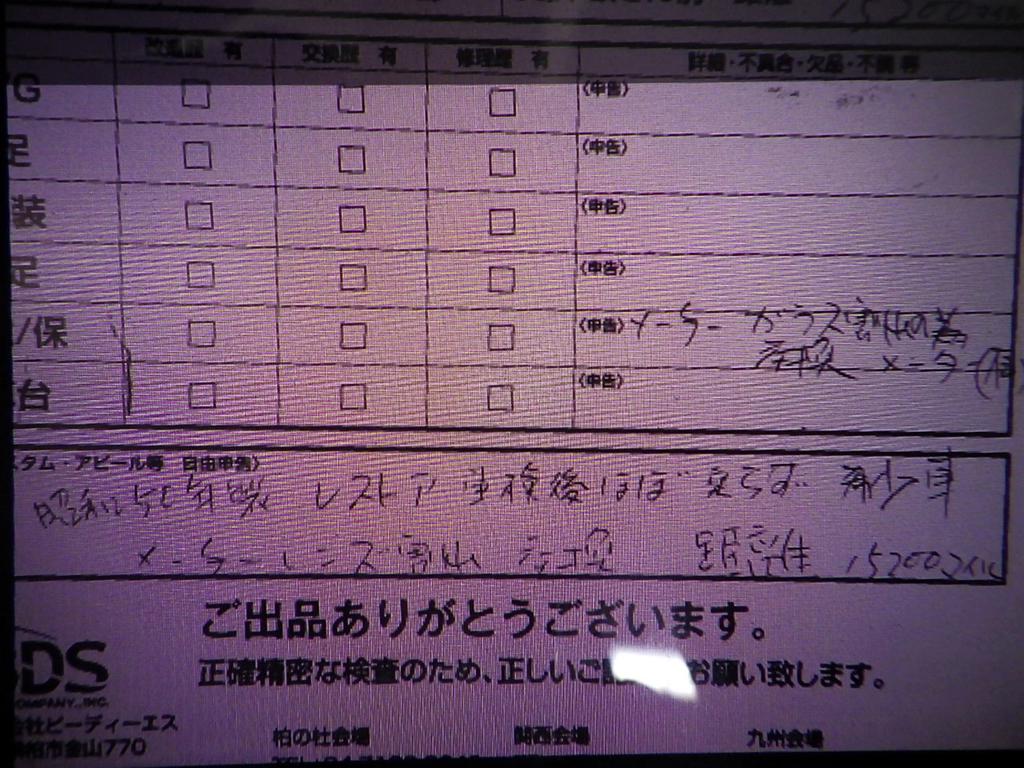 15200
改造歴 有 交換歴 有 修理歴 有 詳細・不具合・欠品・不調 等
G (申告)
足 (申告)
装 (申告)
足 (申告)
/保 (申告) メーターガラス割れの為
交換 メーター
台 (申告)
スタム・アピール等 自由申告)
昭和 年製 レストア 車検後ほぼ乗らず 希少車
メーターレンズ割れ 交換 15200マイル
ご出品ありがとうございます。
正確精密な検査のため、正しいご お願い致します。
DS
COMPANY, INC.
会社ビーディーエス
柏市金山770 柏の杜会場 関西会場 九州会場